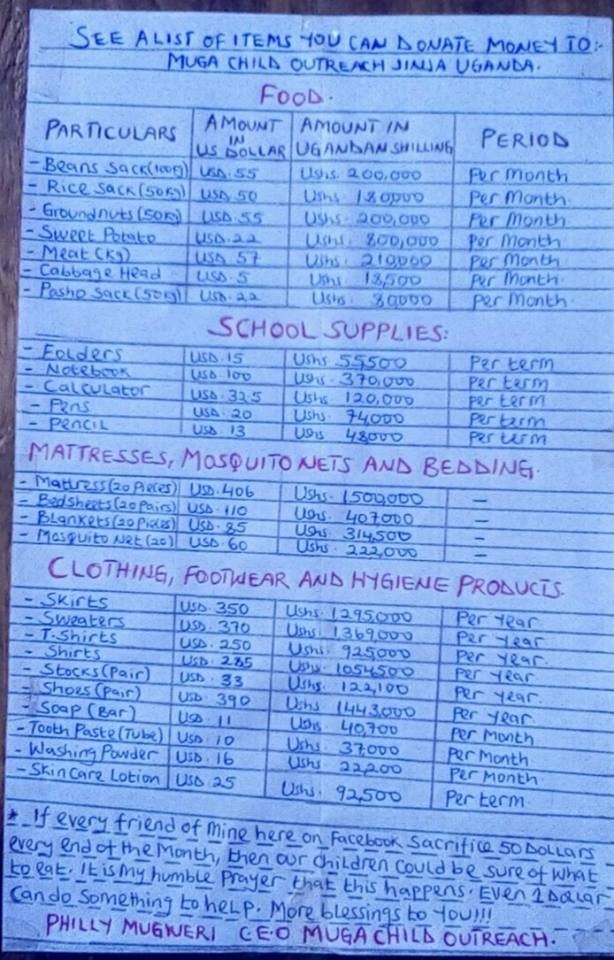 SEE A LIST OF ITEMS YOU CAN DONATE MONEY TO:-
MUGA CHILD OUTREACH JINJA UGANDA.
FOOD.
PARTICULARS AMOUNT IN US DOLLAR AMOUNT IN UGANDAN SHILLING PERIOD
- Beans Sack(100kg) USD. 55 Ushs. 200,000 Per Month
- Rice Sack(50Kg) USD. 50 Ushs. 180,000 Per Month.
- Groundnuts(50Kg) USD. 55 Ushs. 200,000 Per Month
- Sweet Potato USD. 22 Ushs. 800,000 Per Month
- Meat (Kg) USD. 57 Ushs. 210,000 Per Month
- Cabbage Head USD. 5 Ushs. 18,500 Per Month.
- Posho Sack(50Kg) USD. 22 Ushs. 80,000 Per Month.
SCHOOL SUPPLIES:
- Folders USD. 15 Ushs. 55,500 Per term
- Notebook USD. 100 Ushs. 370,000 Per term
- Calculator USD. 32.5 Ushs. 120,000 Per term
- Pens USD. 20 Ushs. 74,000 Per term
- Pencil USD. 13 Ushs 48,000 Per term
MATTRESSES, MOSQUITO NETS AND BEDDING.
- Mattress(20 Pieces) USD. 406 Ushs. 1,500,000 -
- Bedsheets(20 Pairs) USD. 110 Ushs. 407,000 -
- Blankets(20 Pieces) USD. 85 Ushs. 314,500 -
- Mosquito Net(20) USD. 60 Ushs. 222,000 -
CLOTHING, FOOTWEAR AND HYGIENE PRODUCTS.
- Skirts USD. 350 Ushs. 1295,000 Per Year
- Sweaters USD. 370 Ushs. 1369,000 Per Year.
- T-Shirts USD. 250 Ushs. 925,000 Per Year.
- Shirts USD. 285 Ushs. 1054,500 Per Year
- Stocks(Pair) USD. 33 Ushs. 122,100 Per Year.
- Shoes(Pair) USD. 390 Ushs. 1443,000 Per Year
- Soap (Bar) USD. 11 Ushs. 40,700 Per Month
- Tooth Paste(Tube) USD. 10 Ushs. 37,000 Per Month
- Washing Powder USD. 16 Ushs. 22,200 Per Month.
- Skin Care Lotion USD. 25 Ushs. 92,500 Per term.
* If every friend of mine here on Facebook Sacrifice 50 Dollars
every end of the Month, then our children could be sure of what
to eat. It is my humble Prayer that this happens. Even 1 Dollar
can do Something to help. More blessings to You!!!
PHILLY MUGWERI C.E.O MUGA CHILD OUTREACH.